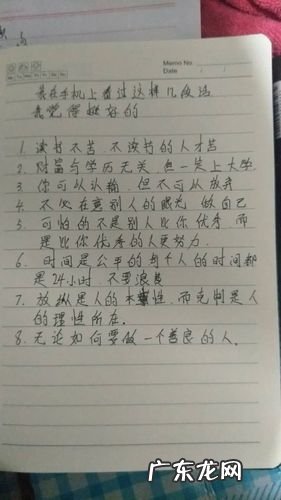 Memo No.
Date / /
我在手机上看过这样几段话
我觉得挺好的
1. 读书不苦，不读书的人才苦
2. 财富与学历无关，但一定上大学
3. 你可以认输，但不可以放弃
4. 不必在意别人的眼光，做自己
5. 可怕的不是别人比你优秀，而
是比你优秀的人更努力.
6. 时间是公平的每个人的时间都
是24小时，不要浪费
7. 放纵是人的本性，而克制是人
的理性所在.
8. 无论如何要做一个善良的人.
广东龙网